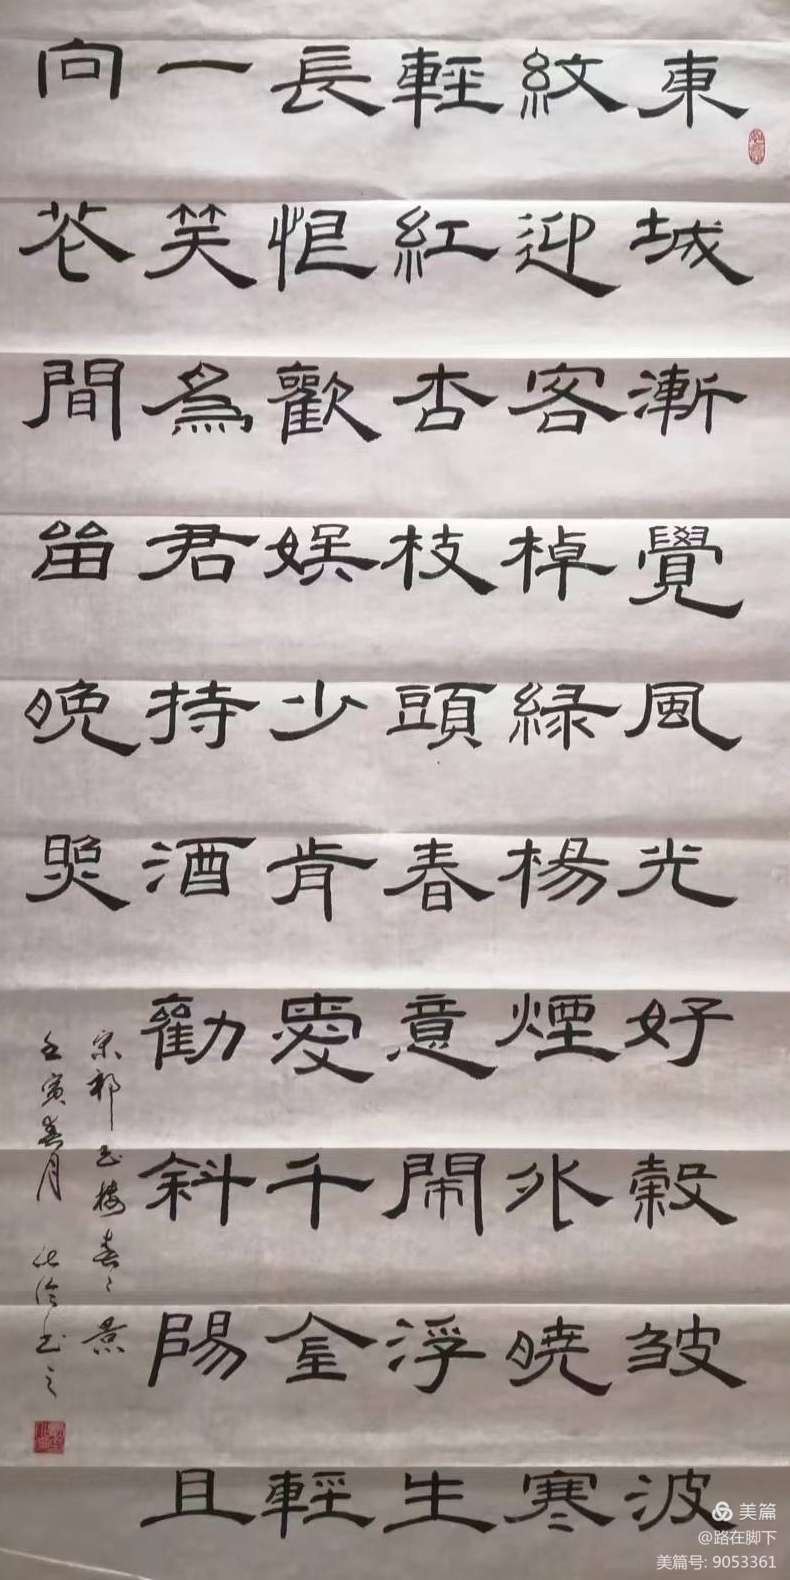 東城漸覺風光好縠皺波
紋迎客棹緑楊煙外曉寒
輕紅杏枝頭春意鬧浮生
長恨歡娛少肯愛千金輕
一笑為君持酒勸斜陽且
向花間留晚照
宋祁玉樓春春景
壬寅春月
美篇
@路在脚下
美篇号: 9053361